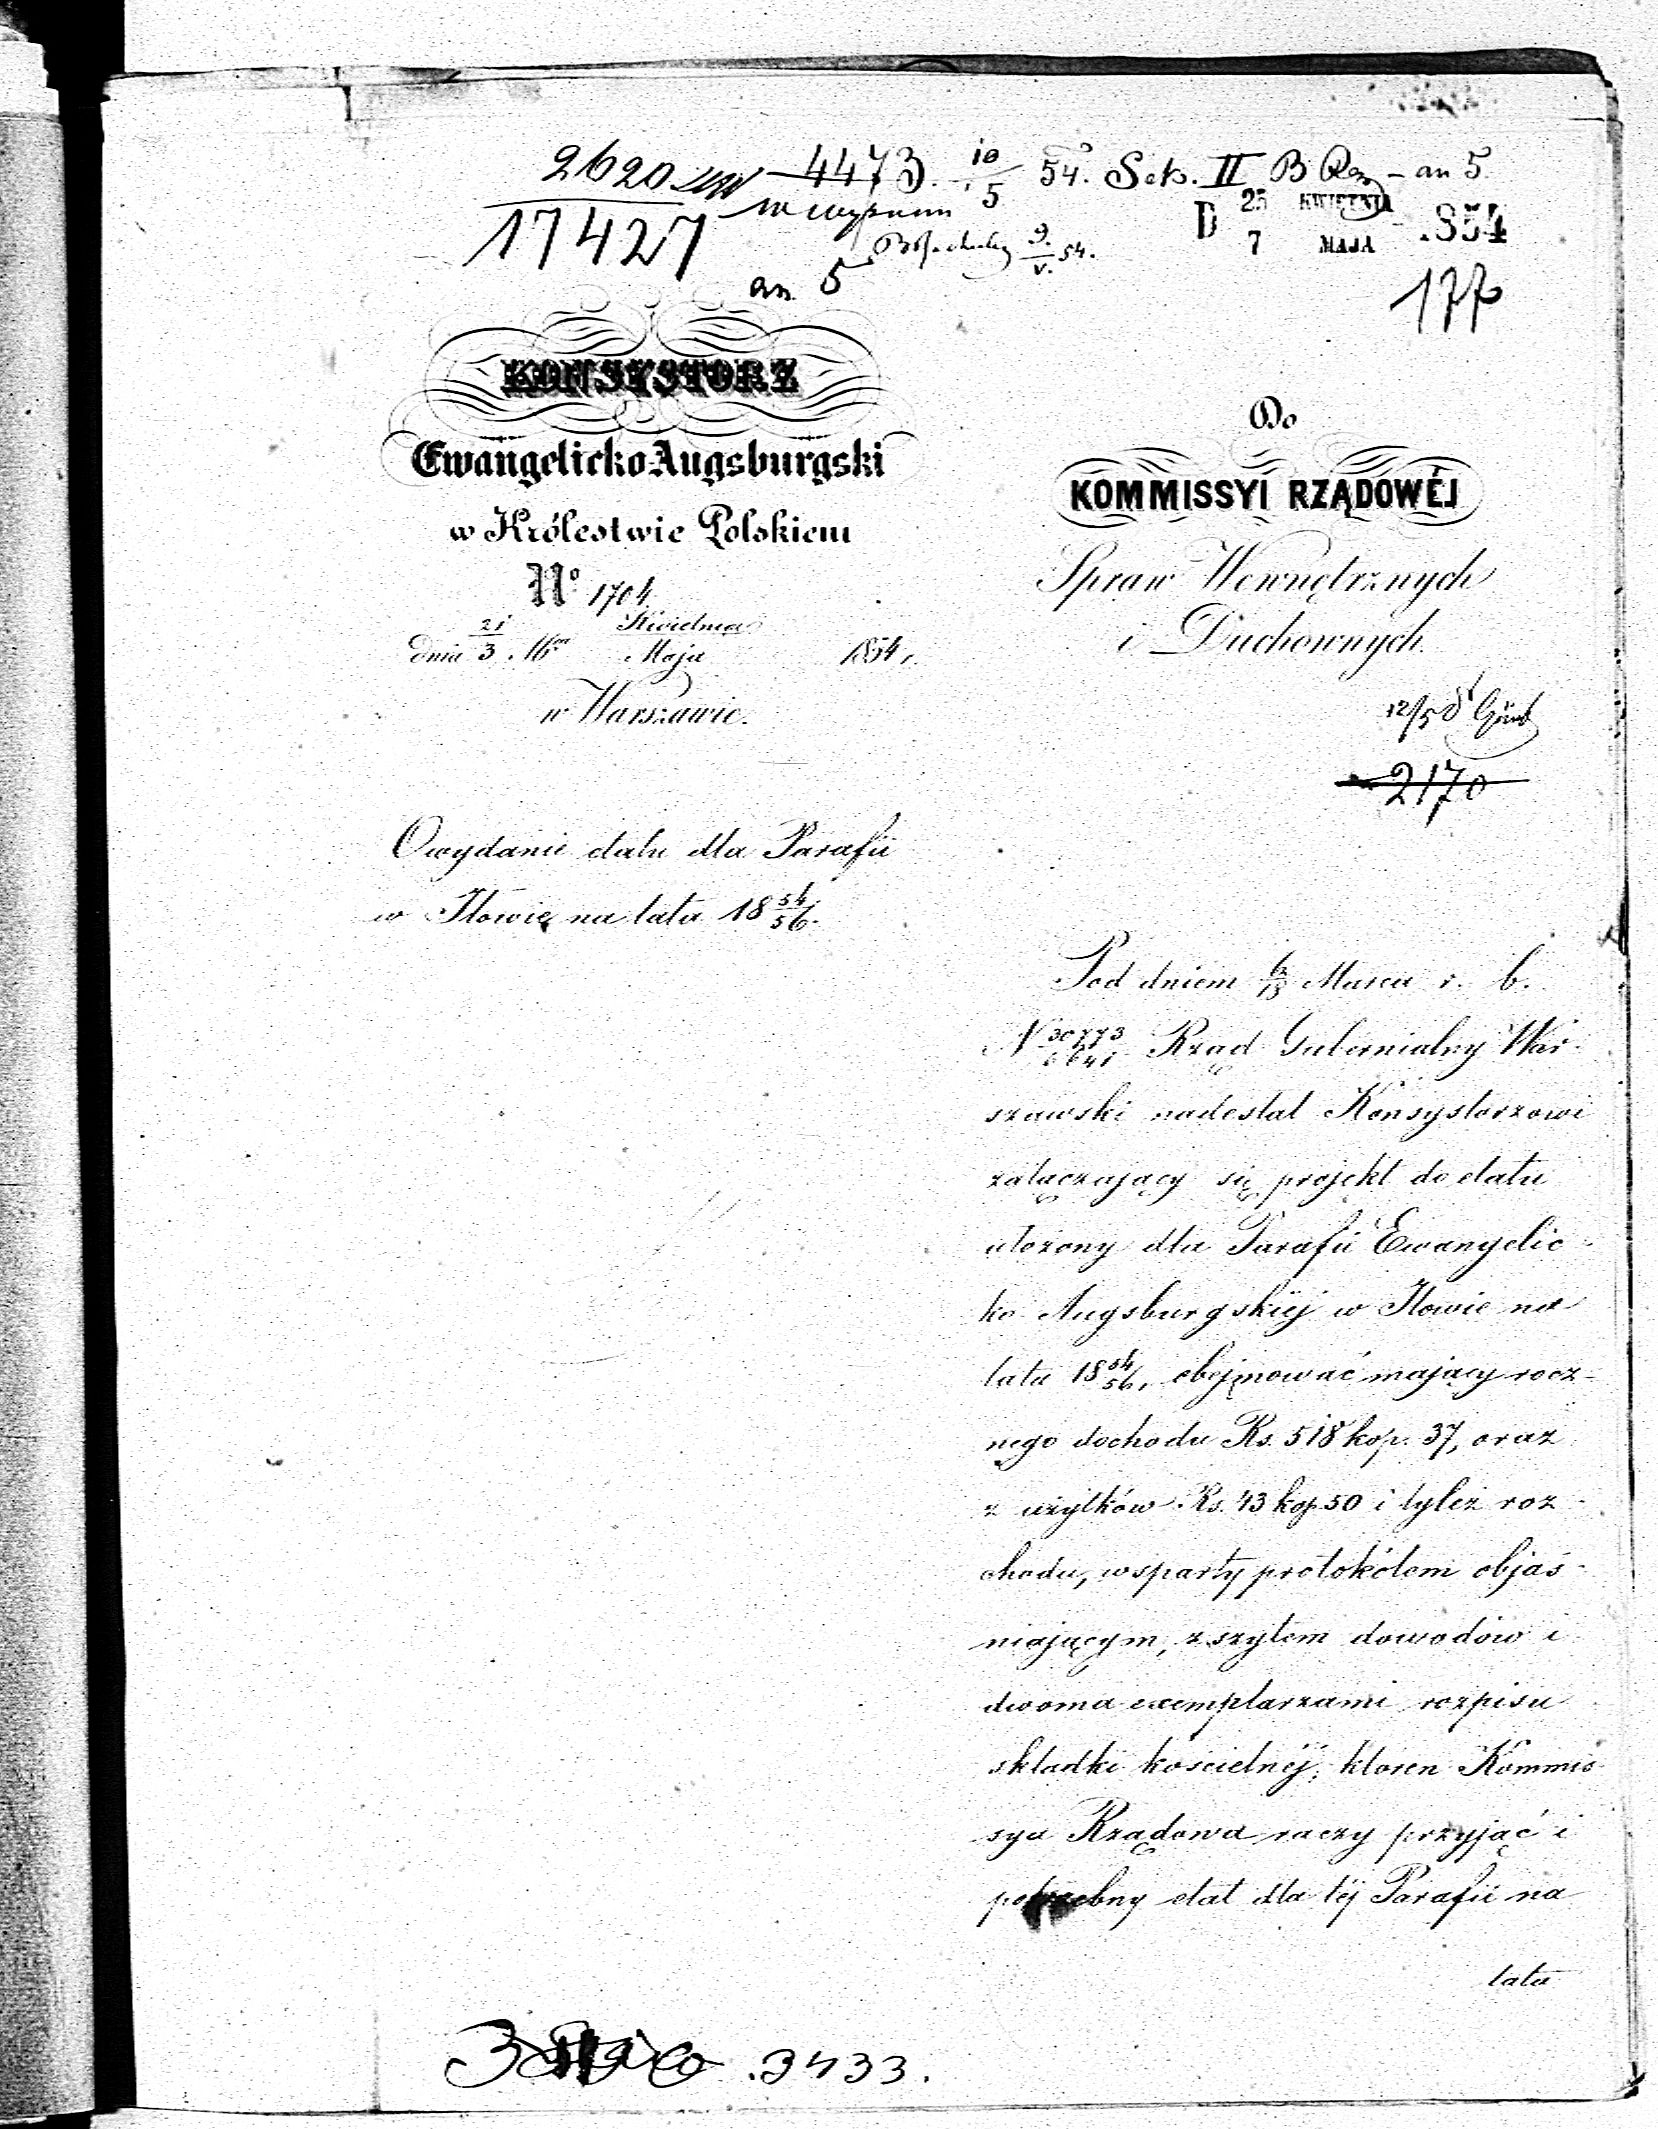 2620
4473. 10/5 54. Sek. II B an 5
17427
D 25 KWIETNIA
7 MAJA .854
9/V. 54.
an 5
177
KONSYSTORZ
Ewangelicko Augsburgski
w Królestwie Polskiem
No 1704
dnia 21/3 Kwietnia/Maja 1854 r.
w Warszawie.
Do
KOMMISSYI RZĄDOWÉJ
Spraw Wewnętrznych
i Duchownych.
12/5
2170
O wydanie etatu dla Parafii
w Iłowie na lata 18 54/56.
Pod dniem Marca r. b.
N Rząd Gubernialny War-
szawski nadesłał Konsystorzowi
załączający się projekt do etatu
ułożony dla Parafii Ewangelic-
ko Augsburgskiéj w Iłowie na
lata 18 54/56, obejmować mający rocz-
nego dochodu Rs. 518 kop. 37, oraz
z użytków Rs. 43 kop. 50 i tyleż roz-
chodu, wsparty protokółem objaś-
niającym, zszytem dowodów i
dwoma exemplarzami rozpisu
składki kościelnéj, któren Kommis-
sya Rządowa raczy przyjąć i
potrzebny etat dla téj Parafii na
lata
3433.